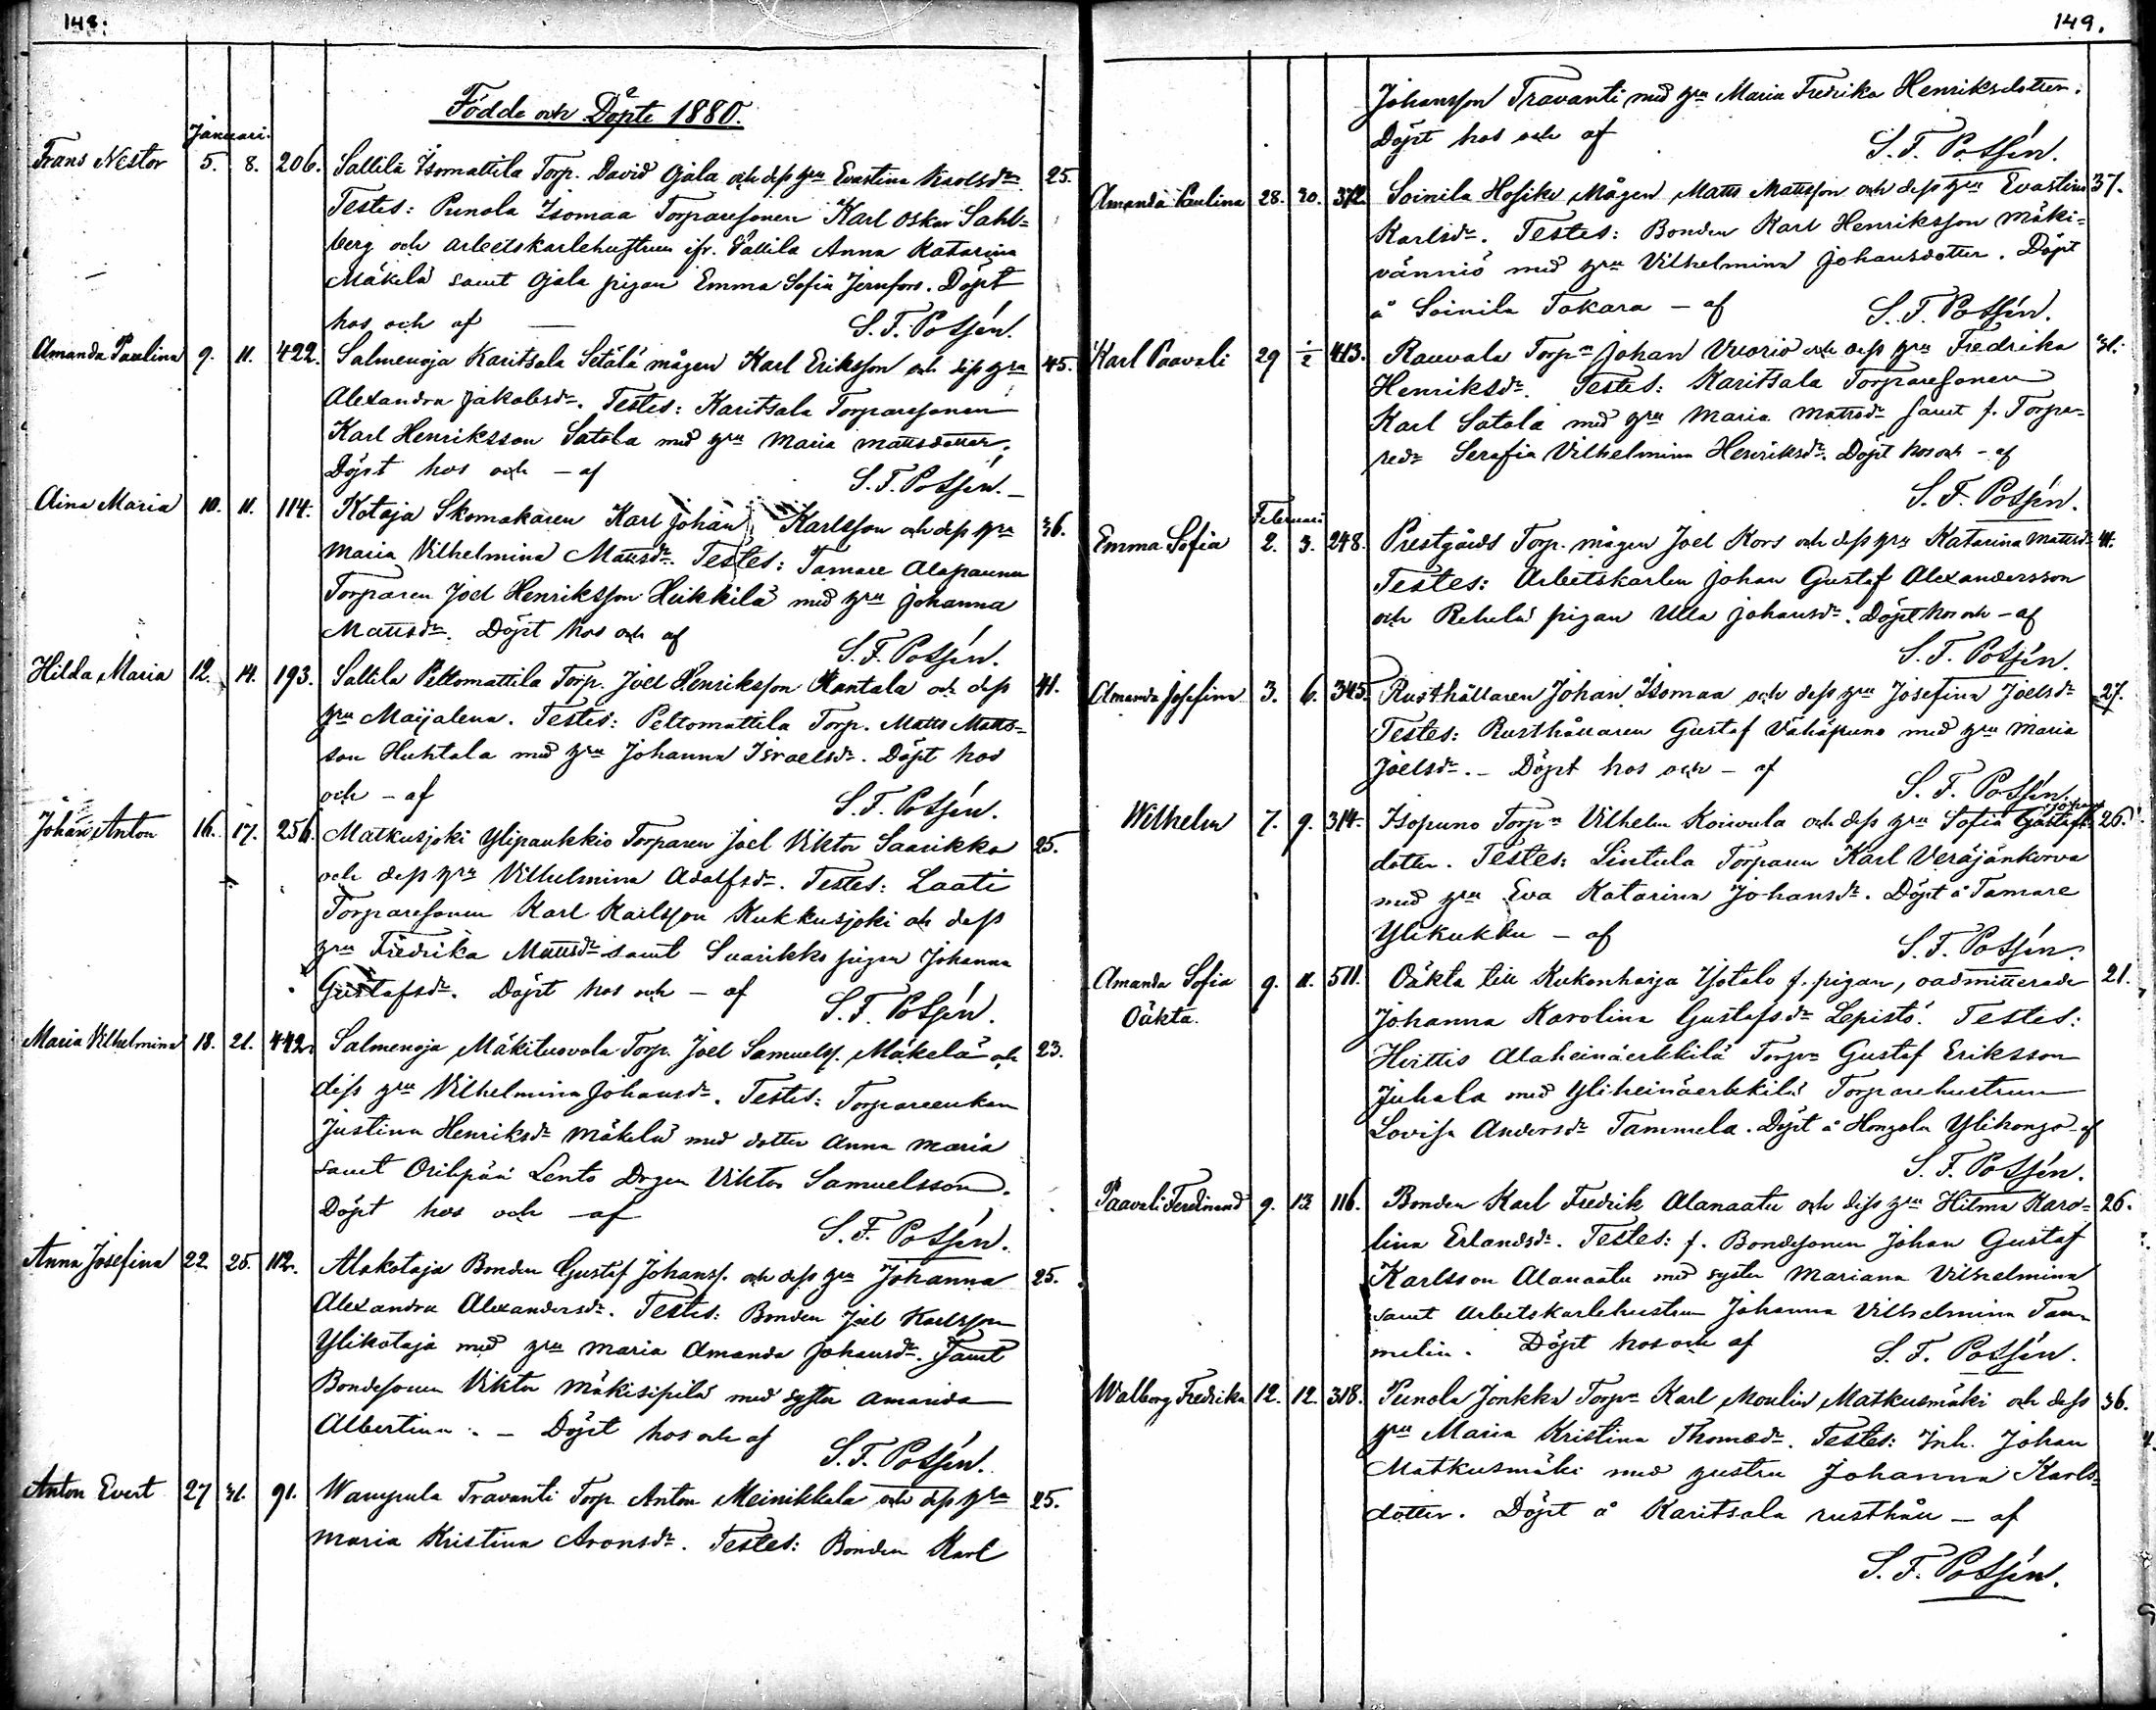 148.
Födde och Döpte 1880.
Januari.
Frans Nestor 5. 8. 206. Sallila Isomattila Torp. David Ojala och dess hru Evastina Karlsdr. 25.
Testes: Punola Isomaa Torparesonen Karl Oskar Sahl=
berg och arbetskarlehustrun ifr. Sallila Anna Katarina
Mäkelä samt Ojala pigan Emma Sofia Jernfors. Döpt
hos och af S. F. Polsén.
Amanda Paulina 9. 11. 422. Salmenoja Karitsala Setälä mågen Karl Eriksson och dess hru 45.
Alexandra Jakobsdr. Testes: Karitsala Torparesonen
Karl Henriksson Satola med hru Maria Mattsdotter.
Döpt hos och - af S. F. Polsén.
Aina Maria 10. 11. 114. Kotaja Skomakaren Karl Johan Karlsson och dess hru 36.
Maria Vilhelmina Mattsdr. Testes: Tamare Alapaunu
Torparen Joel Henriksson Heikkilä med hru Johanna
Mattsdr. Döpt hos och af S. F. Polsén.
Hilda Maria 12. 14. 193. Sallila Peltomattila Torp. Joel Henriksson Rantala och dess 41.
hru Maijalena. Testes: Peltomattila Torp. Matts Matts=
son Huhtala med hru Johanna Israelsdr. Döpt hos
och - af S. F. Polsén.
Johan Anton 16. 17. 256. Matkusjoki Ylipaukkio Torparen Joel Viktor Saarikko 25.
och dess hru Vilhelmina Adolfsdr. Testes: Laati
Torparesonen Karl Karlsson Kukkusjoki och dess
hru Fredrika Mattsdr samt Suarikko pigan Johanna
Gustafsdr. Döpt hos och - af S. F. Polsén.
Maria Vilhelmina 18. 21. 442. Salmenoja Mäkituovola Torp. Joel Samuelss. Mäkelä och 23.
dess hru Vilhelmina Johansdr. Testes: Torpareenkan
Justina Henriksdr Mäkelä med dotter Anna Maria
samt Oripää Lento Drgen Viktor Samuelsson.
Döpt hos och - af S. F. Polsén.
Anna Josefina 22. 25. 112. Alakotaja Bonden Gustaf Johanss. och dess hru Johanna 25.
Alexandra Alexandersdr. Testes: Bonden Joel Karlsson
Ylikotaja med hru Maria Amanda Johansdr. Samt
Bondesonen Viktor Mäkisipilä med syster Amanda
Albertina. - Döpt hos och af S. F. Polsén.
Anton Evert 27 31. 91. Wampula Travanti Torp. Anton Meinikkala och dess hru 25.
Maria Kristina Aronsdr. Testes: Bonden Karl
149.
Johansson Travanti med hru Maria Fredrika Henriksdotter.
Döpt hos och af S. F. Polsén.
Amanda Paulina 28. 30. 372. Soinila Hosike Mågen Matts Mattsson och dess hru Evastina 37.
Karlsdr. Testes: Bonden Karl Henriksson Mäki=
vänniö med hru Vilhelmina Johansdotter. Döpt
å Soinila Takara - af S. F. Polsén.
Karl Paavali 29 1/2 413. Rauvola Torpn Johan Vuorio och dess hru Fredrika 31.
Henriksdr. Testes: Karitsala Torparesonen
Karl Satola med hru Maria Mattsdr samt f. Torpa=
redr Serafia Vilhelmina Henriksdr. Döpt hos och - af
S. F. Polsén.
Februari
Emma Sofia 2. 3. 248. Prestgårds Torp. mågen Joel Kors och dess hru Katarina Mattsdr 41.
Testes: Arbetskarlen Johan Gustaf Alexandersson
och Rekelä pigan Ulla Johansdr. Döpt hos och - af
S. F. Polsén.
Amanda Josefina 3. 6. 345. Rusthållaren Johan Isomaa och dess hru Josefina Joelsdr 27.
Testes: Rusthållaren Gustaf Vähäpuno med hru Maria
Joelsdr. - Döpt hos och - af S. F. Polsén.
Johans
Wilhelm 7. 9. 314. Isopuno Torpn Vilhelm Koivula och dess hru Sofia Gustafs 26.
dotter. Testes: Lintula Torparen Karl Veräjänkorva
med hru Eva Katarina Johansdr. Döpt å Tamare
Ylikukku - af S. F. Polsén.
Amanda Sofia 9. 11. 511. Oäkta till Kukonharja Isotalo f. pigan, oadmitterade 21.
Oäkta. Johanna Karolina Gustafsdr Lepistö. Testes:
Hvittis Alaheinäerkkilä Torpn Gustaf Eriksson
Juhala med Yliheinäerkkilä Torparehustrun
Lovisa Andersdr Tammela. Döpt å Hongola Ylihongo - af
S. F. Polsén.
Paavali Ferdinand 9. 13 116. Bonden Karl Fredrik Alanaatu och dess hru Hilma Karo= 26.
lina Erlandsdr. Testes: f. Bondesonen Johan Gustaf
Karlsson Alanaatu med syster Mariana Vilhelmina
samt arbetskarlehustrun Johanna Vilhelmina Tam=
melin. Döpt hos och af S. F. Polsén.
Walborg Fredrika 12. 12. 318. Punola Jonkka Torpn Karl Moulin Matkusmäki och dess 36.
hru Maria Kristina Thomædr. Testes: Inh. Johan
Matkusmäki med hustru Johanna Karls=
dotter. Döpt å Karitsala rusthåll - af
S. F. Polsén.